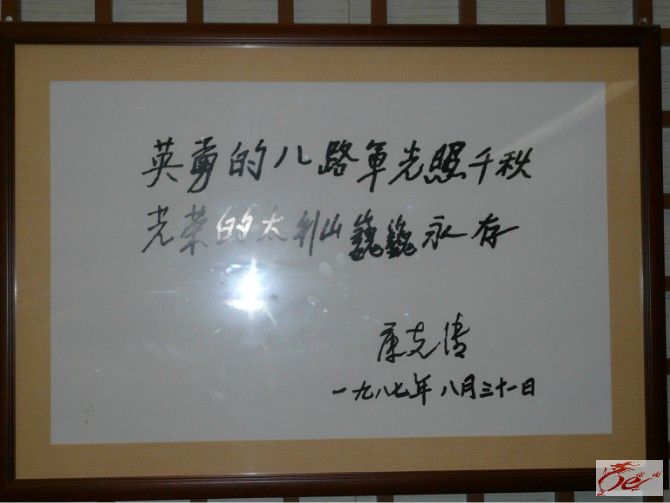 英勇的八路軍光照千秋
光荣的太行山巍巍永存
康克清
一九八七年八月三十一日